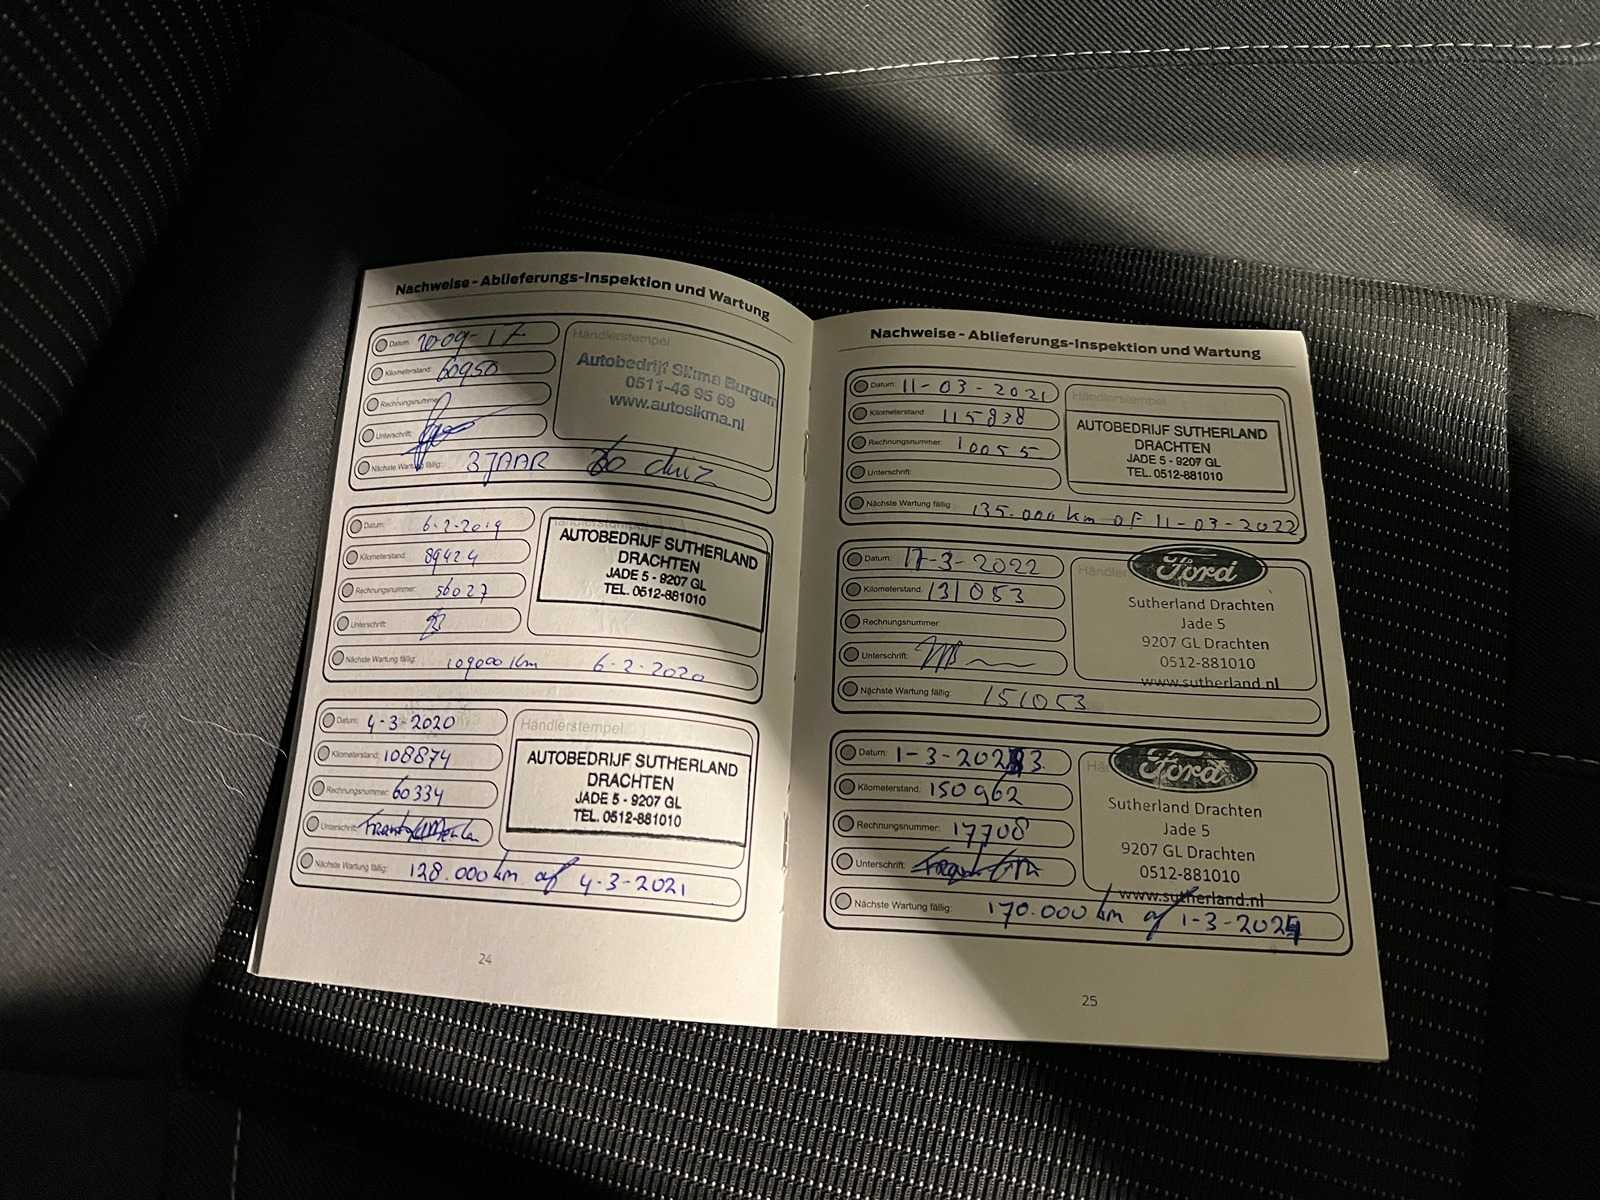 Nachweise - Ablieferungs-Inspektion und Wartung
Datum: 20-09-17
Händlerstempel
Kilometerstand: 60950
Autobedrijf Sikma Burgum
0511-46 95 69
www.autosikma.nl
Rechnungsnummer:
Unterschrift:
Nächste Wartung fällig: 2 JAAR
Datum: 6-2-2019
Händlerstempel
Kilometerstand: 89424
AUTOBEDRIJF SUTHERLAND
DRACHTEN
JADE 5 - 9207 GL
TEL. 0512-881010
Rechnungsnummer: 56027
Unterschrift:
Nächste Wartung fällig: 109000 km 6-2-2020
Datum: 4-3-2020
Händlerstempel
Kilometerstand: 108874
AUTOBEDRIJF SUTHERLAND
DRACHTEN
JADE 5 - 9207 GL
TEL. 0512-881010
Rechnungsnummer: 60334
Unterschrift:
Nächste Wartung fällig: 128.000 km of 4-3-2021
24
Nachweise - Ablieferungs-Inspektion und Wartung
Datum: 11-03-2021
Händlerstempel
Kilometerstand: 115838
AUTOBEDRIJF SUTHERLAND
DRACHTEN
JADE 5 - 9207 GL
TEL. 0512-881010
Rechnungsnummer: 10055
Unterschrift:
Nächste Wartung fällig: 135.000 km of 11-03-2022
Datum: 17-3-2022
Ford
Kilometerstand: 131053
Sutherland Drachten
Jade 5
9207 GL Drachten
0512-881010
www.sutherland.nl
Rechnungsnummer:
Unterschrift:
Nächste Wartung fällig: 151053
Datum: 1-3-2023
Ford
Kilometerstand: 150962
Sutherland Drachten
Jade 5
9207 GL Drachten
0512-881010
www.sutherland.nl
Rechnungsnummer: 17708
Unterschrift:
Nächste Wartung fällig: 170.000 km of 1-3-2024
25